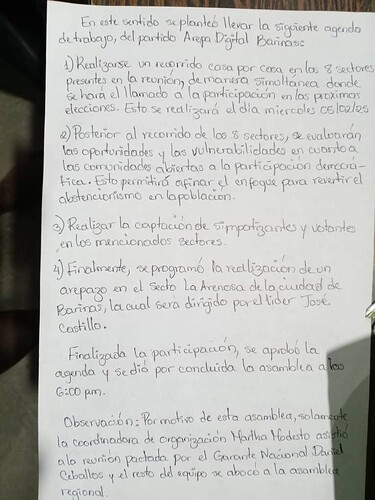 En este sentido se planteó llevar la siguiente agenda
de trabajo, del partido Arepa Digital Barinas:
1) Realizarse un recorrido casa por casa en los 8 sectores
presentes en la reunión, de manera simultánea donde
se hará el llamado a la participación en las proximas
elecciones. Esto se realizará el día miercoles 05/02/25
2) Posterior al recorrido de los 8 sectores, se evaluarán
las oportunidades y las vulnerabilidades en cuanto a
las comunidades abiertas a la participación democrá-
tica. Esto permitirá afinar el enfoque para revertir el
abstencionismo en la población.
3) Realizar la captación de simpatizantes y votantes
en los mencionados sectores.
4) Finalmente, se programó la realización de un
arepazo en el Secto La Arenosa de la ciudad de
Barinas, la cual será dirigido por el lider José
Castillo.
Finalizada la participación, se aprobó la
agenda y se dió por concluida la asamblea a las
6:00 pm.
Observación: Por motivo de esta asamblea, solamente
la coordinadora de organización Martha Modesto asistió
a la reunión pactada por el Garante Nacional Daniel
Ceballos y el resto del equipo se abocó a la asamblea
regional.